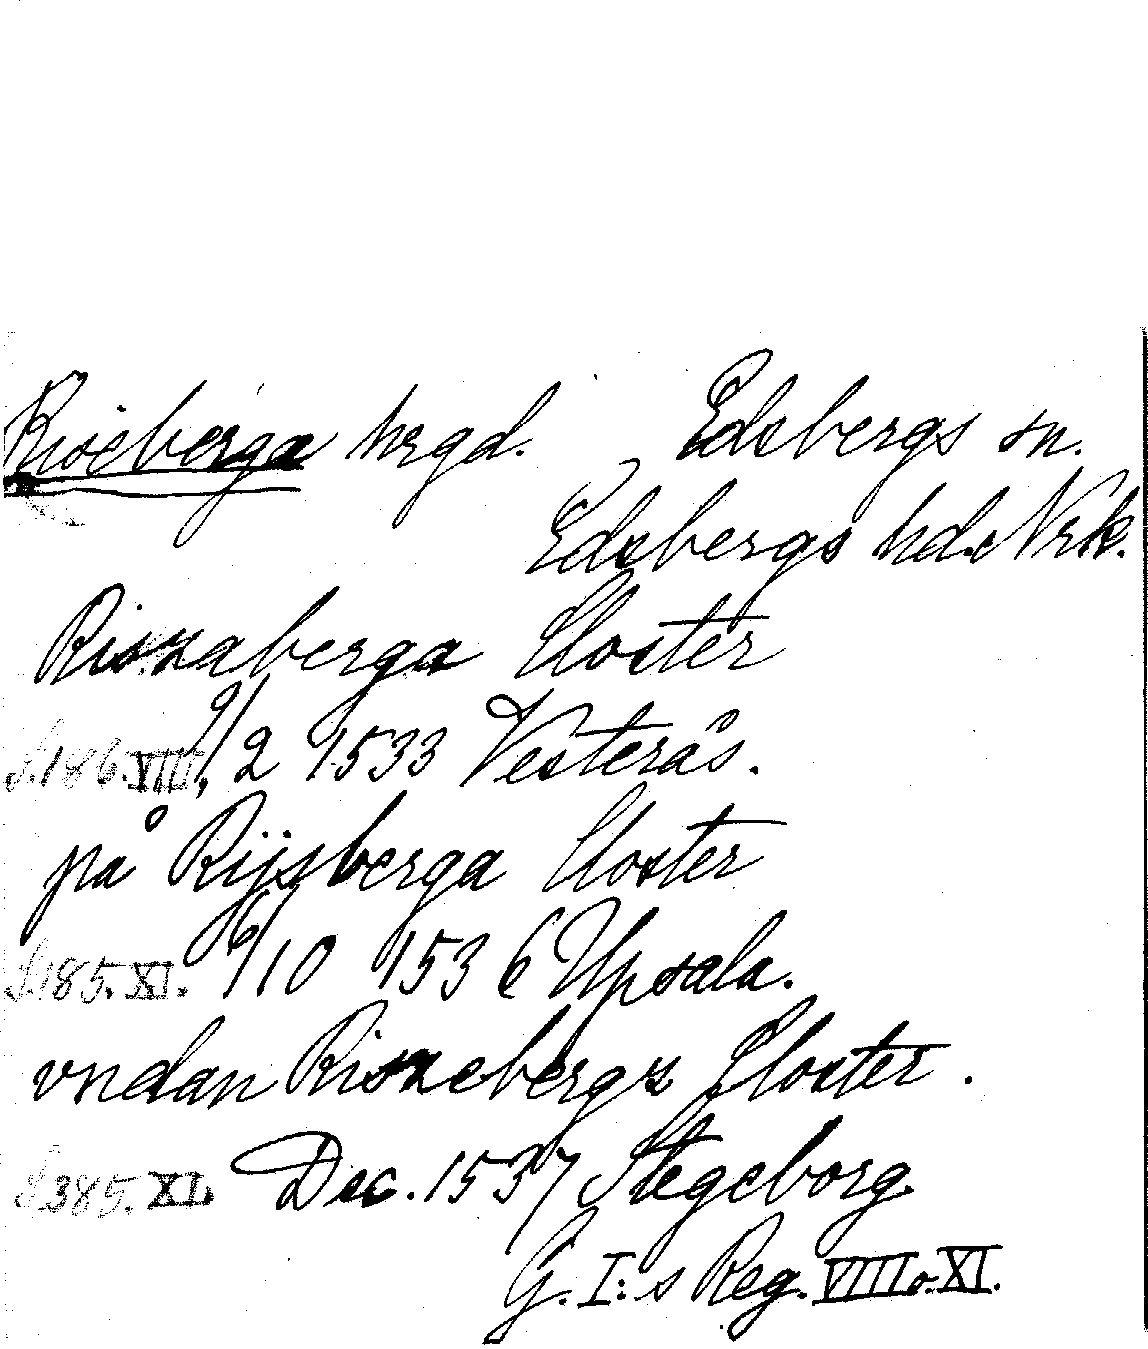 Riseberga hrgd. Edsbergs sn.
Edsbergs hd. Nrk.
Riszaberga Closter
S. 186. VIII, 9/2 1533 Vesterås.
på Rijsberga Closter
S. 185. XI. 9/10 1536 Upsala.
vndan Riszebergz Closter.
S. 385. XI. Dec. 1537 Stegeborg.
G. I:s Reg. VIII o. XI.